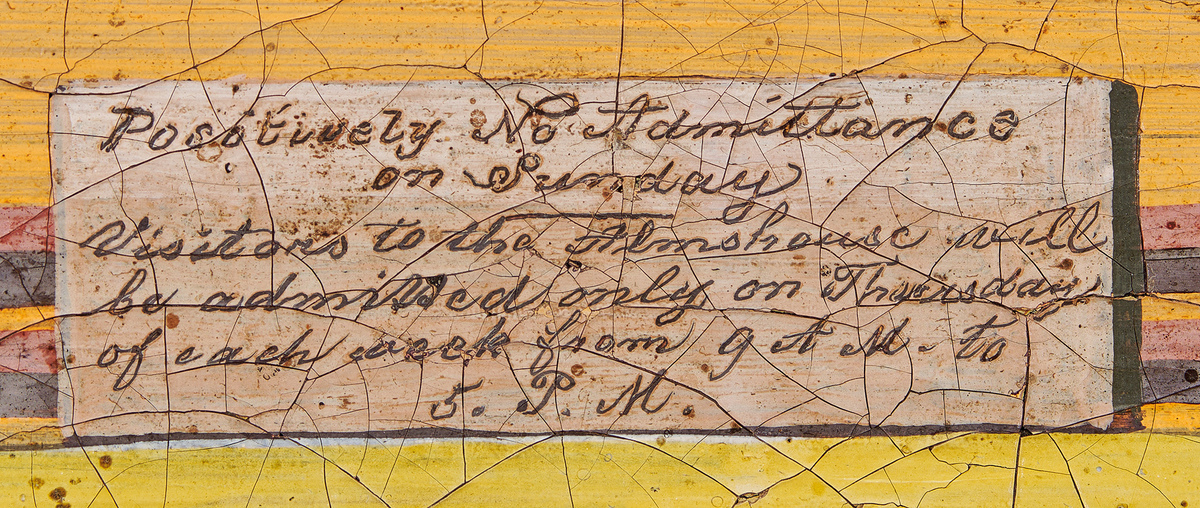 Positively No Admittance
on Sunday
Visitors to the Almshouse will
be admitted only on Thursday
of each week from 9 A M. to
5. P. M.